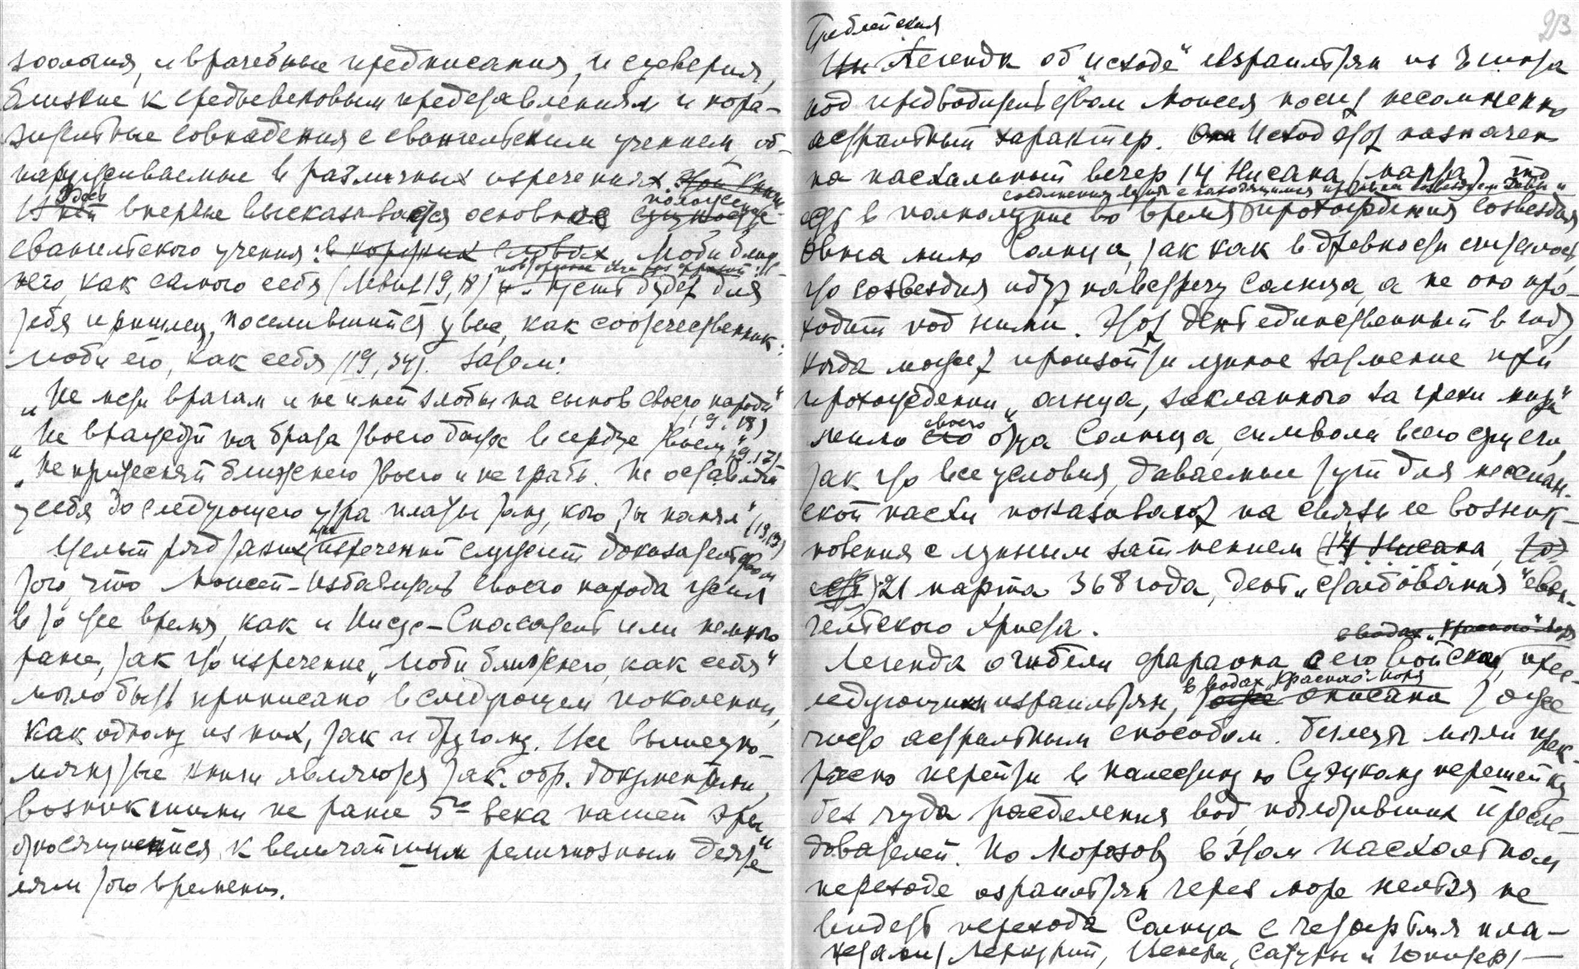 зоология, и врачебные предписания, и суеверия,
близкие к средневековым представлениям и пора-
зительные совпадения с евангельским учением, об-
наруживаемые в различных изречениях. этой книги
Из ней здесь впервые высказывается основное сущность положение
евангельского учения: в коротких словах „Люби ближ-
него, как самого себя (Левит 19, 18) и „Пусть будет для
тебя пришлец, поселившийся у вас, как соотечественник:
люби его, как себя (19, 34). Затем:
„Не мсти врагам и не имей злобы на сынов своего народа"
(19. 18)
„Не враждуй на брата твоего даже в сердце твоем" (19. 17)
„Не притесняй ближнего твоего и не грабь. Не оставляй
у себя до следующего утра платы тому, кого ты нанял" (19, 13)
Целый ряд таких изречений служит доказательством
того, что Моисей-избавитель своего народа жил
в то же время, как и Иисус-Спаситель или немного
ранее, так что изречение „люби ближнего, как себя"
могло быть приписано в следующем поколении,
как одному из них, так и другому. Все вышеупо-
мянутые книги являются так. обр. документами,
возникшими не ранее 5го века нашей эры
относящимися к величайшим религиозным деяте-
лям того времени.
23
Библейская
Легенда об „исходе" израильтян из Египта
под предводительством Моисея носит несомненно
астральный характер. Она Исход этот назначен
на пасхальный вечер 14 Нисана (марта), т.е.
соединения луны с находящимся против созвездием Девы и
в полнолуние во время прохождения созвездия
Овна мимо Солнца, так как в древности считалось,
что созвездия идут навстречу Солнцу, а не оно про-
ходит под ними. Этот день единственный в году,
когда может произойти лунное затмение при
прохождении „агнца, закланного за грехи мира"
мимо его своего отца Солнца, символа всего сущего,
так что все условия, даваемые тут для моисей-
ской пасхи показывают на связь ее возник-
новения с лунным затмением (14 Нисана,
21 марта 368 года, день „столбования" еван-
гельского Христа.
в водах „Красного" моря
Легенда о гибели фараона с его войском, прес-
в водах „Красного" моря
ледующим израильтян, тоже описана тоже
чисто астральным способом. Беглецы могли прек-
расно перейти в Палестину по Суэцкому перешейку
без чуда разделения вод, поглотивших пресле-
дователей. По Морозову в этом пасхальном
переходе израильтян через море нельзя не
видеть перехода Солнца с четырьмя пла-
нетами (Меркурий, Венера, Сатурн и Юпитер) —